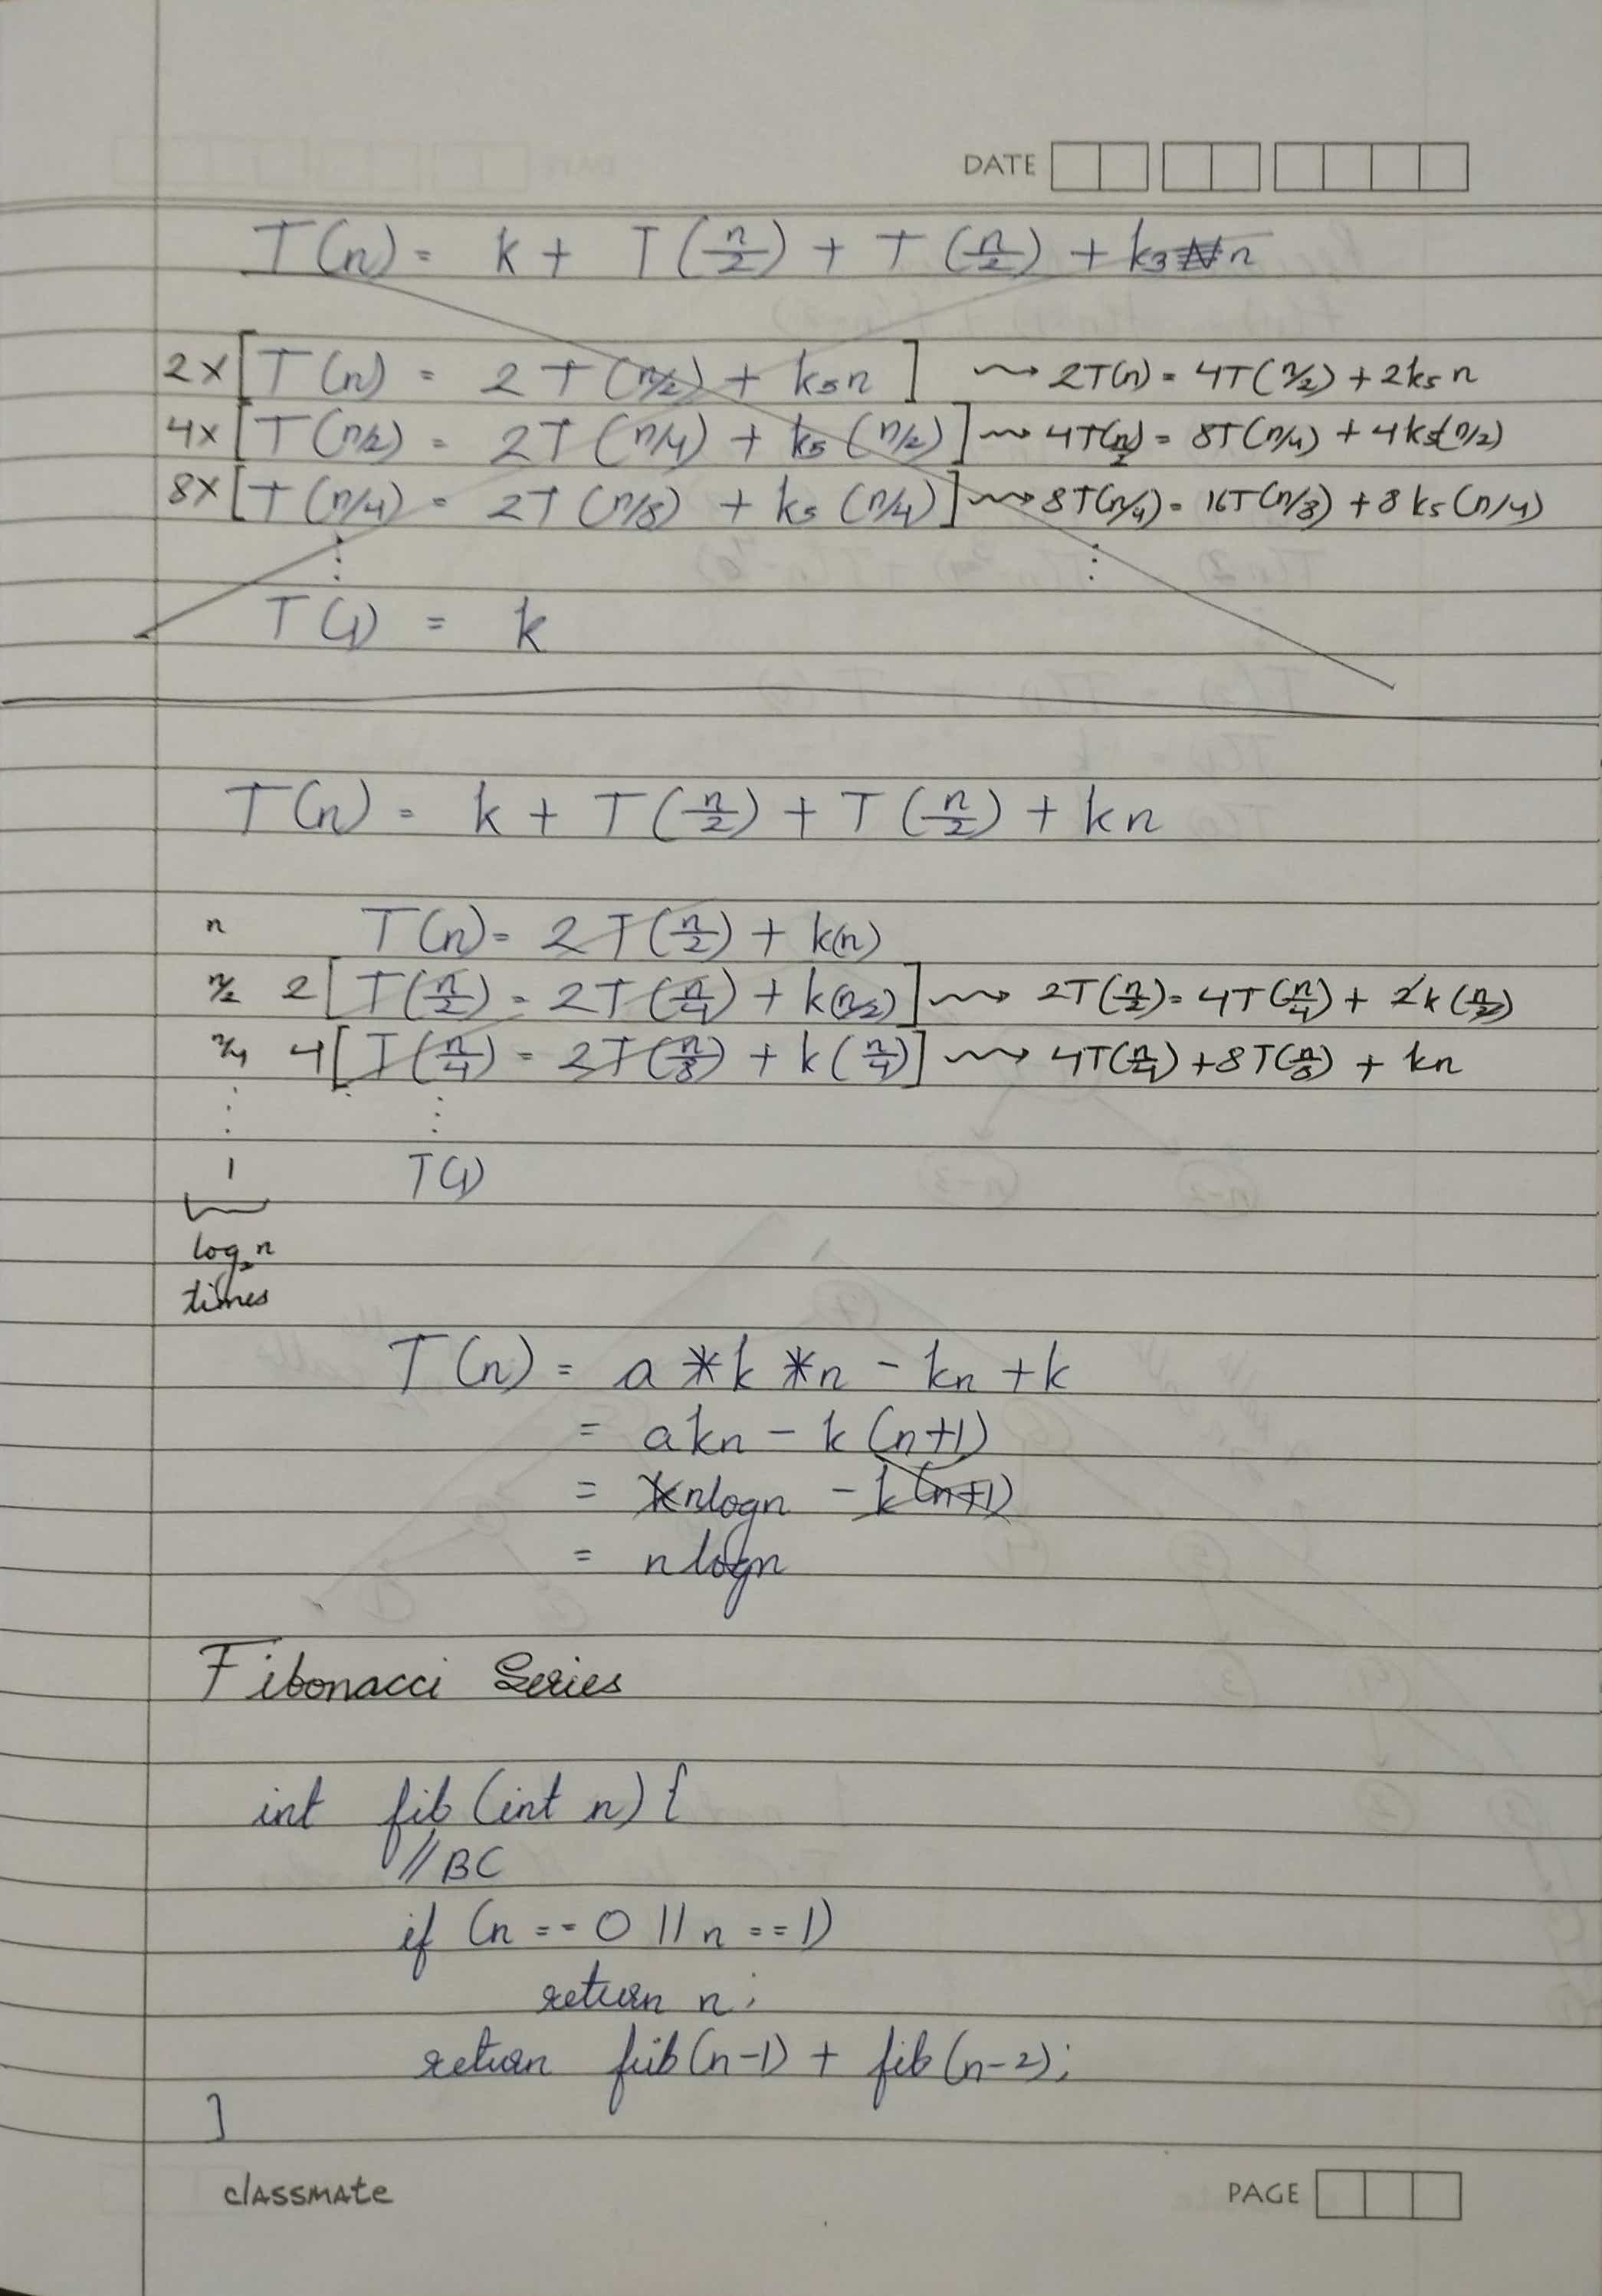 DATE
T(n) = k + T(n/2) + T(n/2) + k3 n
2x [T(n) = 2T(n/2) + k5n] ⇝ 2T(n) = 4T(n/2) + 2k5 n
4x [T(n/2) = 2T(n/4) + k5 (n/2)] ⇝ 4T(n/2) = 8T(n/4) + 4k5(n/2)
8x [T(n/4) = 2T(n/8) + k5 (n/4)] ⇝ 8T(n/4) = 16T(n/8) + 8k5(n/4)
⋮ ⋮
T(1) = k
T(n) = k + T(n/2) + T(n/2) + kn
n T(n) = 2T(n/2) + k(n)
n/2 2[T(n/2) = 2T(n/4) + k(n/2)] ⇝ 2T(n/2) = 4T(n/4) + 2k(n/2)
n/4 4[T(n/4) = 2T(n/8) + k(n/4)] ⇝ 4T(n/4) + 8T(n/8) + kn
⋮ ⋮
1 T(1)
log₂n
times
T(n) = a * k * n - kn + k
= akn - k(n+1)
= knlogn - k(n+1)
= nlogn
Fibonacci Series
int fib(int n){
//BC
if (n == 0 || n == 1)
return n;
return fib(n-1) + fib(n-2);
}
classmate
PAGE